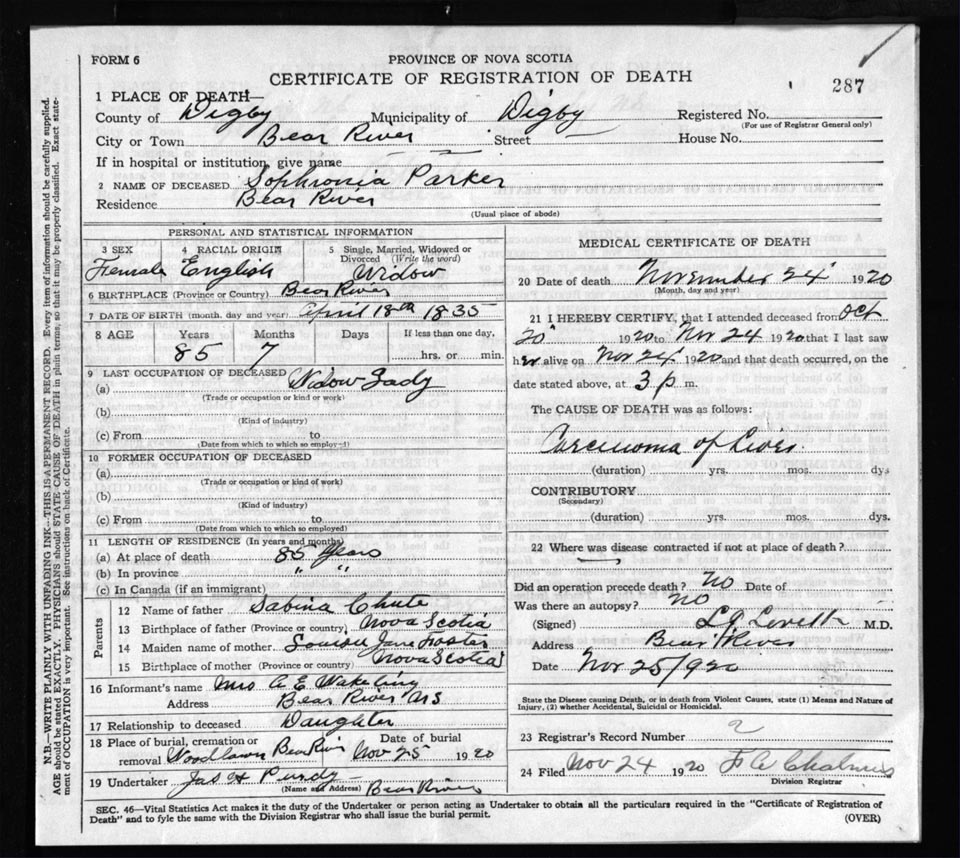 FORM 6
PROVINCE OF NOVA SCOTIA
CERTIFICATE OF REGISTRATION OF DEATH
287
1 PLACE OF DEATH—
County of Digby Municipality of Digby Registered No.
(For use of Registrar General only)
City or Town Bear River Street House No.
If in hospital or institution, give name
2 NAME OF DECEASED Sophronia Parker
Residence Bear River
(Usual place of abode)
PERSONAL AND STATISTICAL INFORMATION
3 SEX 4 RACIAL ORIGIN 5 Single, Married, Widowed or Divorced (Write the word)
Female English Widow
6 BIRTHPLACE (Province or Country) Bear River
7 DATE OF BIRTH (month, day and year) April 18th 1835
8 AGE Years Months Days If less than one day,
85 7 hrs. or min.
9 LAST OCCUPATION OF DECEASED
(a) Widow Lady
(Trade or occupation or kind or work)
(b)
(Kind of industry)
(c) From to
(Date from which to which so employed)
10 FORMER OCCUPATION OF DECEASED
(a)
(Trade or occupation or kind of work)
(b)
(Kind of industry)
(c) From to
(Date from which to which so employed)
11 LENGTH OF RESIDENCE (In years and months)
(a) At place of death 85 years
(b) In province " "
(c) In Canada (if an immigrant)
Parents
12 Name of father Sabina Chute
13 Birthplace of father (Province or country) Nova Scotia
14 Maiden name of mother Louisa Jane Foster
15 Birthplace of mother (Province or country) Nova Scotia
16 Informant's name Mrs A E Wakeling
Address Bear River NS
17 Relationship to deceased Daughter
18 Place of burial, cremation or removal Woodlawn Bear River Date of burial Nov 25 1920
19 Undertaker Jas H Purdy
(Name and Address) Bear River
MEDICAL CERTIFICATE OF DEATH
20 Date of death November 24 1920
(Month, day and year)
21 I HEREBY CERTIFY, that I attended deceased from Oct
20 1920 to Nov 24 1920 that I last saw
her alive on Nov 24 1920 and that death occurred, on the
date stated above, at 3 p m.
The CAUSE OF DEATH was as follows:
Carcinoma of Liver
(duration) yrs. mos. dys
CONTRIBUTORY
(Secondary)
(duration) yrs. mos. dys.
22 Where was disease contracted if not at place of death?
Did an operation precede death? No Date of
Was there an autopsy? No
(Signed) L J Lovett M.D.
Address Bear River
Date Nov 25/920
State the Disease causing Death, or in death from Violent Causes, state (1) Means and Nature of
Injury, (2) whether Accidental, Suicidal or Homicidal.
23 Registrar's Record Number 2
24 Filed Nov 24 1920 Chalmers
Division Registrar
SEC. 46—Vital Statistics Act makes it the duty of the Undertaker or person acting as Undertaker to obtain all the particulars required in the "Certificate of Registration of
Death" and to fyle the same with the Division Registrar who shall issue the burial permit.
(OVER)
N.B.—WRITE PLAINLY WITH UNFADING INK—THIS IS A PERMANENT RECORD. Every item of information should be carefully supplied.
AGE should be stated EXACTLY. PHYSICIANS should STATE CAUSE OF DEATH in plain terms, so that it may be properly classified. Exact state-
ment of OCCUPATION is very important. See instructions on back of Certificate.